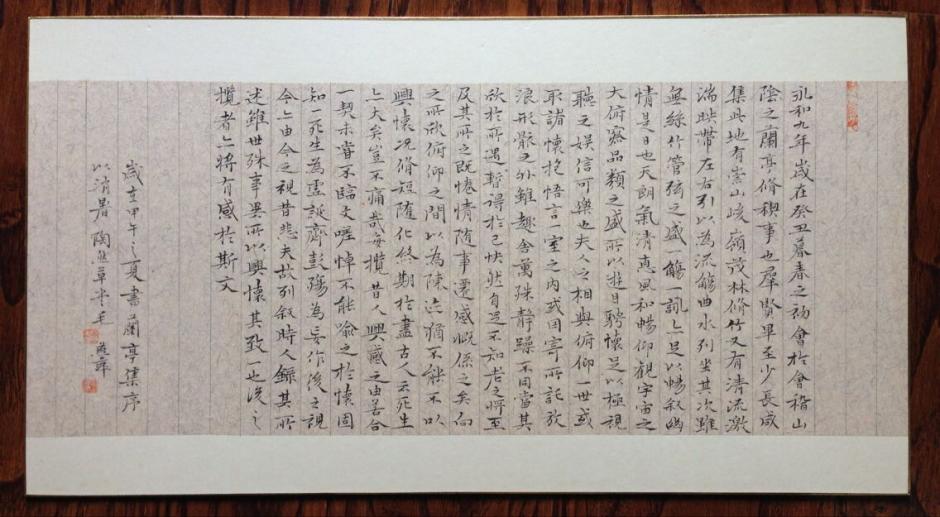 永和九年歲在癸丑暮春之初會於會稽山
陰之蘭亭脩稧事也羣賢畢至少長咸
集此地有崇山峻嶺茂林脩竹又有清流激
湍暎帶左右引以為流觴曲水列坐其次雖
無絲竹管弦之盛一觴一詠亦足以暢叙幽
情是日也天朗氣清惠風和暢仰觀宇宙之
大俯察品類之盛所以遊目騁懷足以極視
聽之娛信可樂也夫人之相與俯仰一世或
取諸懷抱悟言一室之內或因寄所託放
浪形骸之外雖趣舍萬殊靜躁不同當其
欣於所遇暫得於己快然自足不知老之將至
及其所之既惓情隨事遷感慨係之矣向
之所欣俯仰之間以為陳迹猶不能不以
興懷況脩短隨化終期於盡古人云死生
亦大矣豈不痛哉每攬昔人興感之由若合
一契未嘗不臨文嗟悼不能喻之於懷固
知一死生為虛誕齊彭殤為妄作後之視
今亦由今之視昔悲夫故列叙時人錄其所
述雖世殊事異所以興懷其致一也後之
攬者亦將有感於斯文
歲在甲午之夏書蘭亭集序
以消暑陶然草堂毛